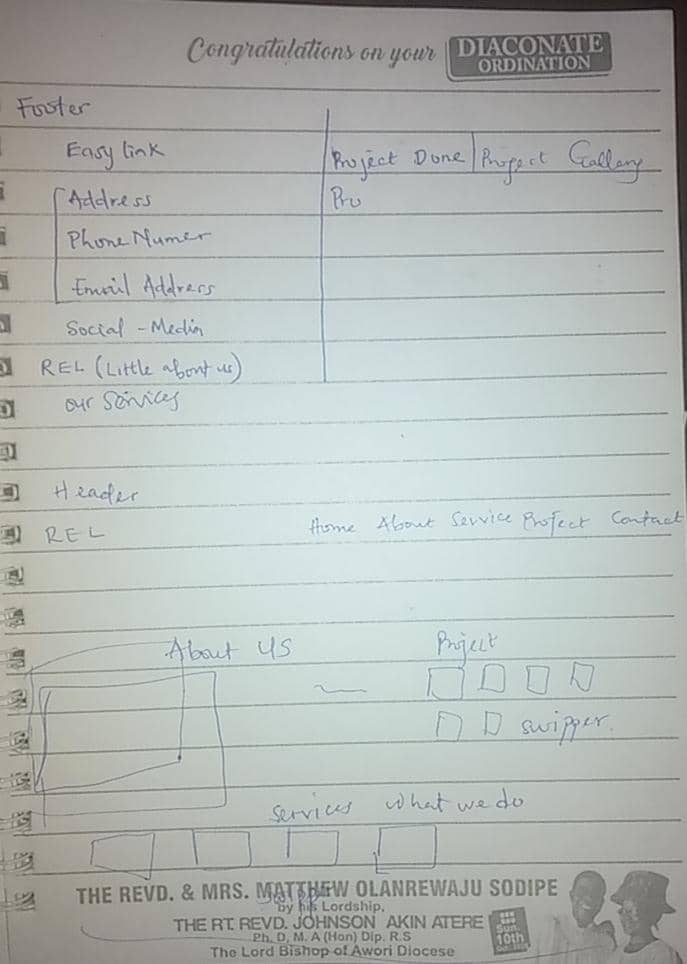 Congratulations on your DIACONATE ORDINATION
Footer
Easy link
Project Done Project Gallery
Address
Pro
Phone Numer
Email Address
Social - Media
REL (Little about us)
our Services
Header
REL Home About Service Project Contact
About US Project
swipper.
Services What we do
THE REVD. & MRS. MATTHEW OLANREWAJU SODIPE
by his Lordship,
THE RT. REVD. JOHNSON AKIN ATERE
Ph. D, M. A (Hon) Dip. R.S
The Lord Bishop of Awori Diocese
Sun.
10th